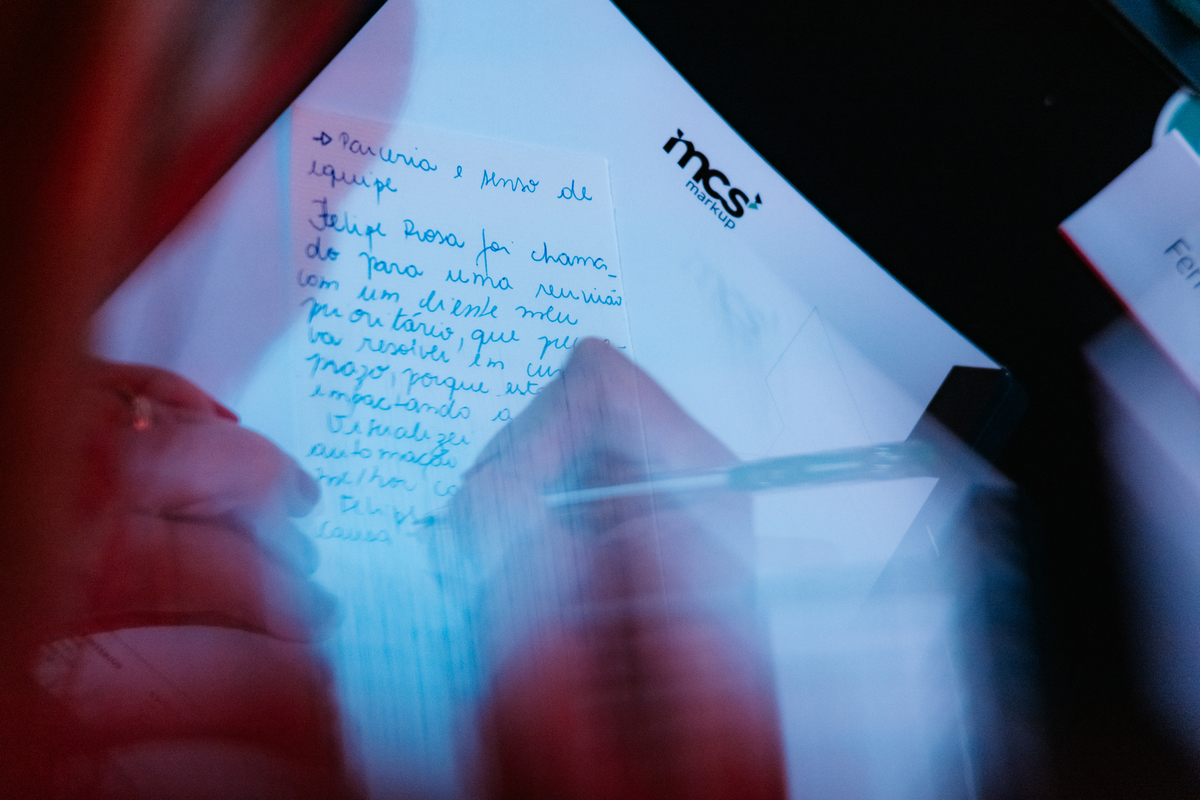 → Parceria e senso de
equipe
Felipe Rosa foi chama-
do para uma reunião
com um cliente meu
prioritário, que
va resolver em um
prazo, porque est
impactando a
Visualizei
automação
melhor co
Felipe
causa
mcs
markup
Fer